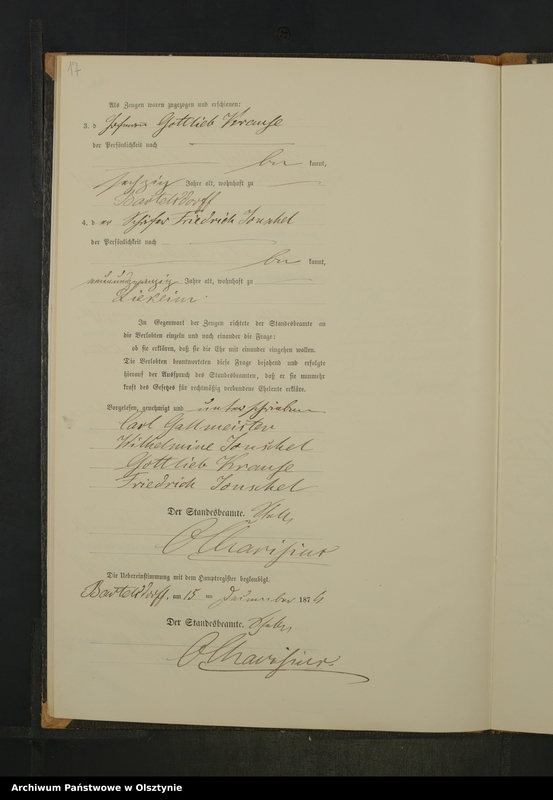 17
Als Zeugen waren zugezogen und erschienen:
3. d Gottlieb Krause
der Persönlichkeit nach
be kannt,
sechzig Jahre alt, wohnhaft zu
Bartelsdorff
4. d er Schäfer Friedrich Jonschel
der Persönlichkeit nach
be kannt,
Jahre alt, wohnhaft zu
Liekeim.
In Gegenwart der Zeugen richtete der Standesbeamte an
die Verlobten einzeln und nach einander die Frage:
ob sie erklären, daß sie die Ehe mit einander eingehen wollen.
Die Verlobten beantworteten diese Frage bejahend und erfolgte
hierauf der Ausspruch des Standesbeamten, daß er sie nunmehr
kraft des Gesetzes für rechtmäßig verbundene Eheleute erkläre.
Vorgelesen, genehmigt und unterschrieben
Carl Gallmeister
Wilhelmine Jonschel
Gottlieb Krause
Friedrich Jonschel
Der Standesbeamte.
Die Uebereinstimmung mit dem Hauptregister beglaubigt.
Bartelsdorff, am 15 ten Dezember 1876
Der Standesbeamte.
Archiwum Państwowe w Olsztynie